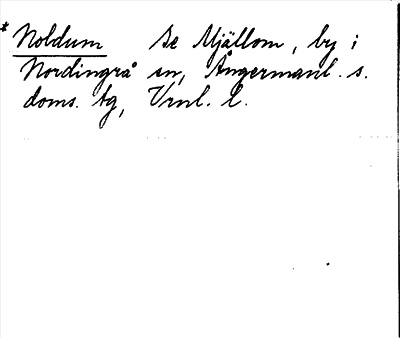 * Noldum Se Mjällom, by i
Nordingrå sn, Ångermanl. s.
doms. tg, Vrnl. l.